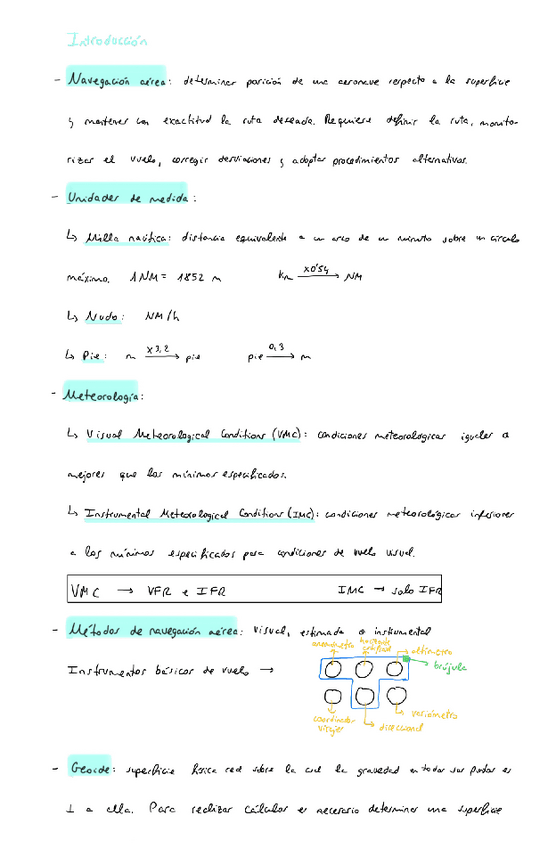 Introducción
- Navegación aérea: determinar posición de una aeronave respecto a la superficie
y mantener con exactitud la ruta deseada. Requiere definir la ruta, monito-
rizar el vuelo, corregir desviaciones y adoptar procedimientos alternativos.
- Unidades de medida:
↳ Milla naútica: distancia equivalente a un arco de un minuto sobre un círculo
máximo. 1 NM = 1852 m km x0'54 → NM
↳ Nudo: NM/h
↳ Pie: m x3,2 → pie pie 0,3 → m
- Meteorología:
↳ Visual Meteorological Conditions (VMC): condiciones meteorológicas iguales o
mejores que los mínimos especificados.
↳ Instrumental Meteorological Conditions (IMC): condiciones meteorológicas inferiores
a los mínimos especificados para condiciones de vuelo visual.
VMC → VFR e IFR IMC → solo IFR
- Métodos de navegación aérea: visual, estimada o instrumental
anemómetro horizonte artificial altímetro
Instrumentos básicos de vuelo → brújula
coordinador virajes direccional variómetro
- Geoide: superficie física real sobre la cual la gravedad en todos sus puntos es
⊥ a ella. Para realizar cálculos es necesario determinar una superficie